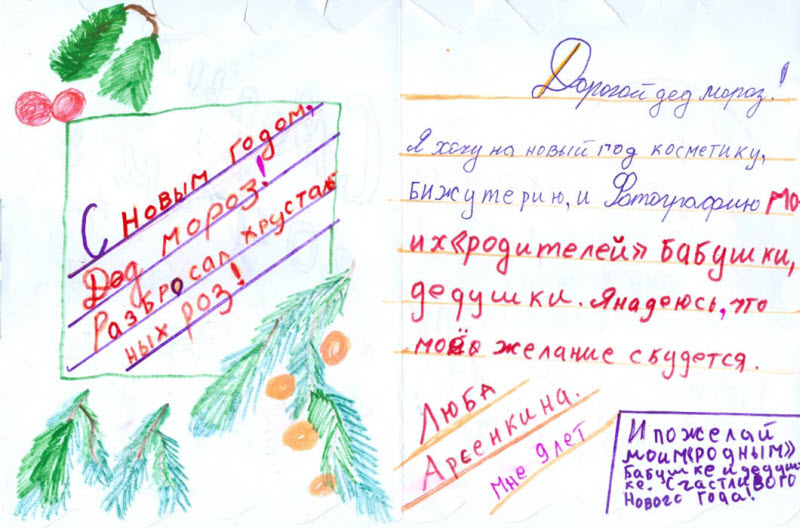 С новым годом,
Дед мороз!
Разбросал хрусталь
ных роз!
Дорогой дед мороз!
Я хочу на новый год косметику,
бижутерию, и Фотографию мо-
их «родителей» бабушки,
дедушки. Я надеюсь, что
моё желание сбудется.
Люба
Арсенкина.
Мне 9 лет
И пожелай
моим «родным»
бабушке и дедуш
ке. Счастливого
Нового года!